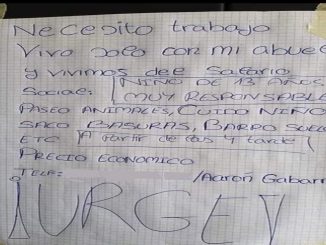 Necesito trabajo
Vivo solo con mi abue
y vivimos del Salario
Social: NIÑO DE 13 AÑOS
MUY RESPONSABLE
PASEO ANIMALES, CUIDO NIÑO
SACO BASURAS, BARRO SUEL
ETC A partir de las y tarde
PRECIO ECONOMICO
TELF: /Aaron Gabarr
¡URGE!